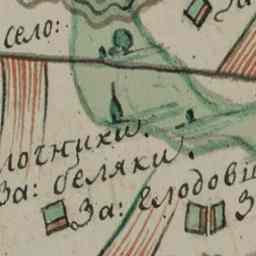 село:
лочники.
За: беляки,
За: Слодов